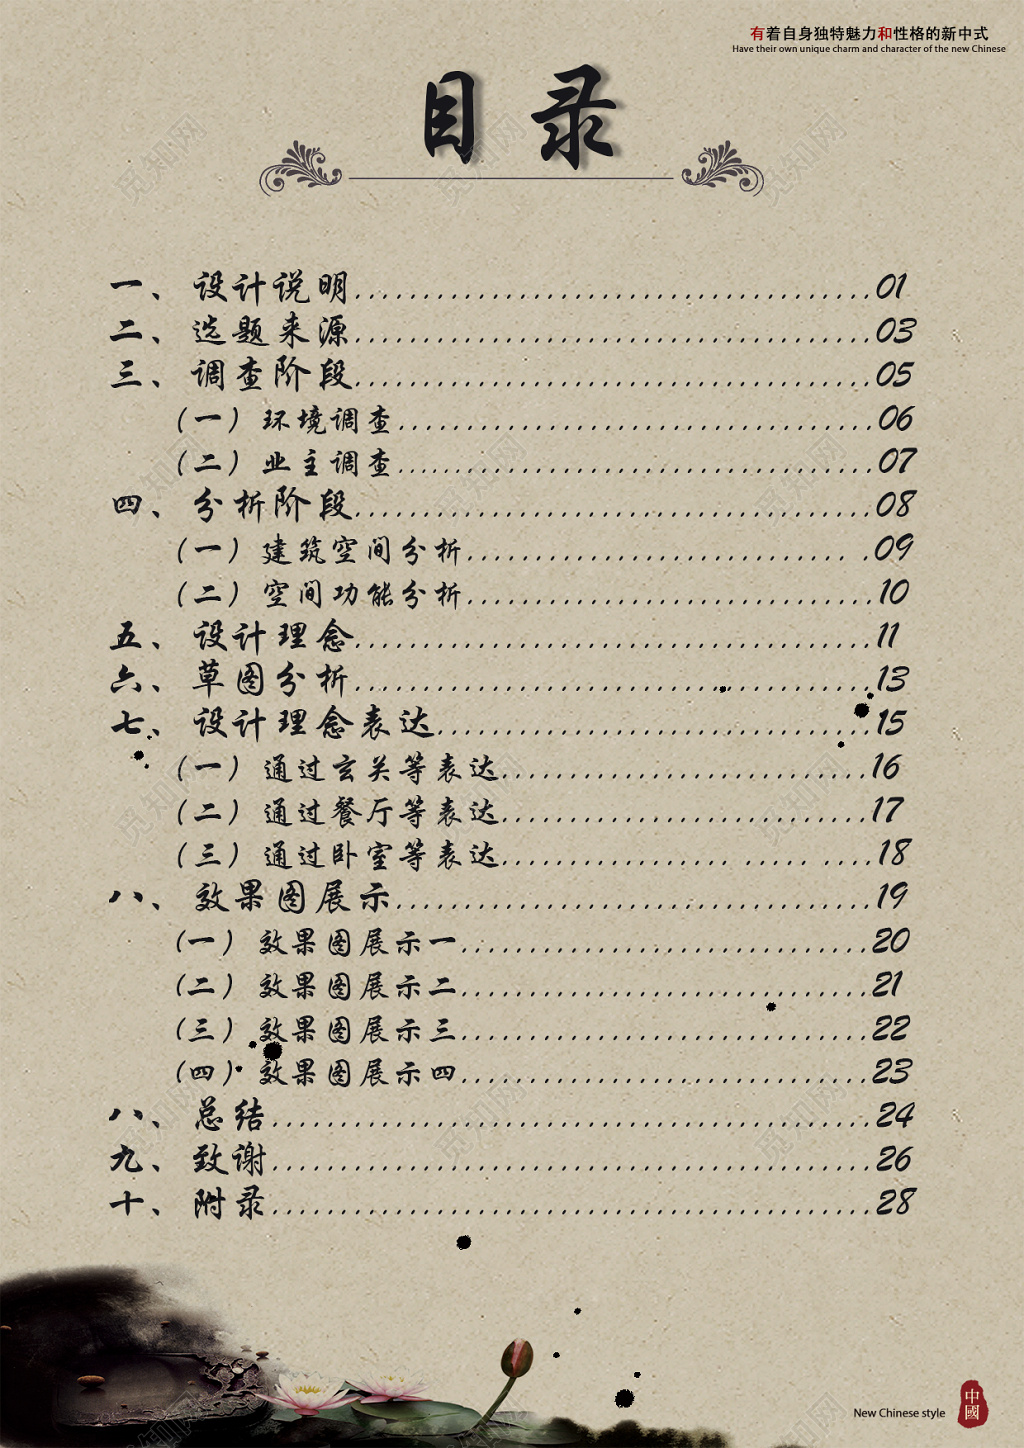 有着自身独特魅力和性格的新中式
Have their own unique charm and character of the new Chinese
目录
一、设计说明......................................01
二、选题来源......................................03
三、调查阶段......................................05
（一）环境调查...................................06
（二）业主调查...................................07
四、分析阶段......................................08
（一）建筑空间分析............................. .09
（二）空间功能分析..............................10
五、设计理念......................................11
六、草图分析......................................13
七、设计理念表达................................15
（一）通过玄关等表达...........................16
（二）通过餐厅等表达...........................17
（三）通过卧室等表达................. ..... .....18
八、效果图展示...................................19
（一）效果图展示一..............................20
（二）效果图展示二..............................21
（三）效果图展示三..............................22
（四）效果图展示四..............................23
八、总结............................................24
九、致谢............................................26
十、附录............................................28
New Chinese style
中國
觅知网